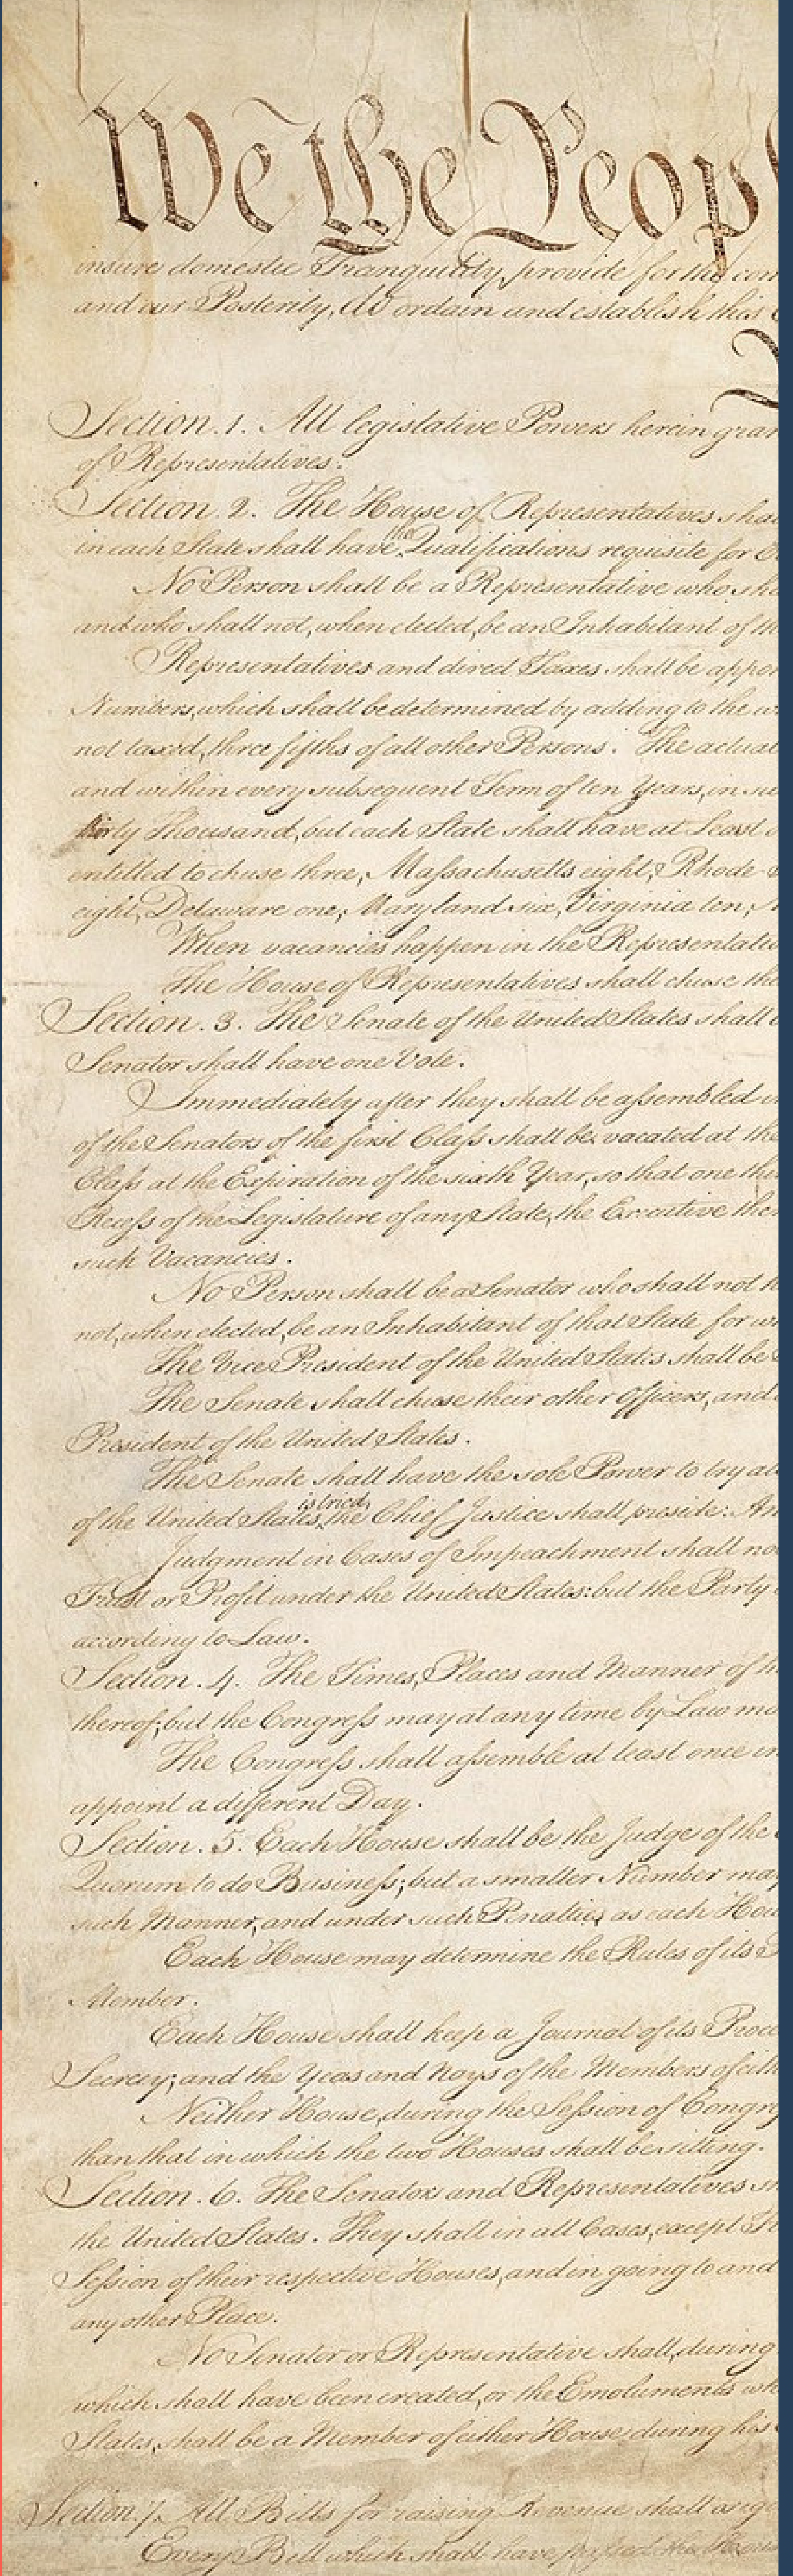 We the Peop
insure domestic Tranquility, provide for the com
and our Posterity, do ordain and establish this
Section. 1. All legislative Powers herein gran
of Representatives.
Section. 2. The House of Representatives shal
in each State shall have the Qualifications requisite for
No Person shall be a Representative who sha
and who shall not, when elected, be an Inhabitant of th
Representatives and direct Taxes shall be appor
Numbers, which shall be determined by adding to the w
not taxed, three fifths of all other Persons. The actual
and within every subsequent Term of ten Years, in su
thirty Thousand, but each State shall have at Least
entitled to chuse three, Massachusetts eight, Rhode
eight, Delaware one, Maryland six, Virginia ten,
When vacancies happen in the Representatio
The House of Representatives shall chuse the
Section. 3. The Senate of the United States shall
Senator shall have one Vote.
Immediately after they shall be assembled i
of the Senators of the first Class shall be vacated at the
Class at the Expiration of the sixth Year, so that one thi
Recess of the Legislature of any State, the Executive ther
such Vacancies.
No Person shall be a Senator who shall not
not, when elected, be an Inhabitant of that State for w
The Vice President of the United States shall be
The Senate shall chuse their other Officers, and
President of the United States.
The Senate shall have the sole Power to try al
of the United States is tried, the Chief Justice shall preside: An
Judgment in Cases of Impeachment shall no
Trust or Profit under the United States: but the Party
according to Law.
Section. 4. The Times, Places and Manner of h
thereof; but the Congress may at any time by Law ma
The Congress shall assemble at least once in
appoint a different Day.
Section. 5. Each House shall be the Judge of the
Quorum to do Business; but a smaller Number may
such Manner, and under such Penalties as each Hou
Each House may determine the Rules of its
Member.
Each House shall keep a Journal of its Proce
Secrecy; and the Yeas and Nays of the Members of eith
Neither House, during the Session of Congre
than that in which the two Houses shall be sitting.
Section. 6. The Senators and Representatives sh
the United States. They shall in all Cases, except
Session of their respective Houses, and in going to and
any other Place.
No Senator or Representative shall, during
which shall have been created, or the Emoluments wh
States, shall be a Member of either House during his
Section. 7. All Bills for raising Revenue shall orig
Every Bill which shall have passed the House